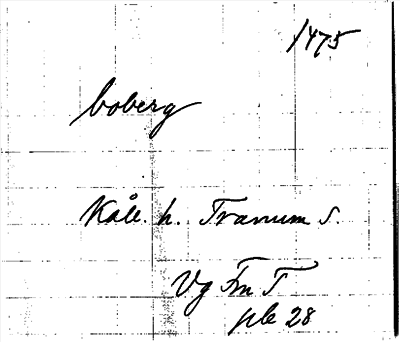 1475
boberg
Kåle. h. Tranum s.
Vg Fm T
ple 28